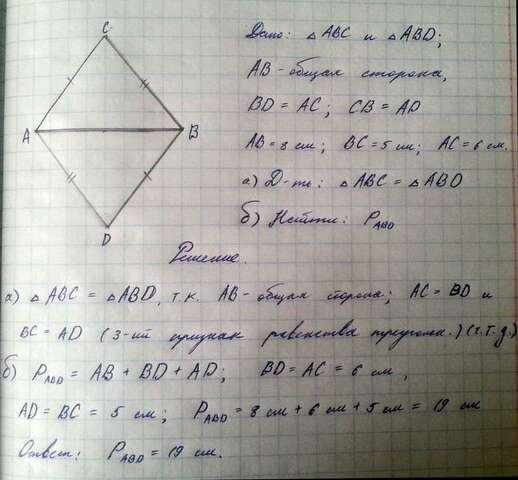 C
A
B
D
Дано: △ABC и △ABD;
AB - общая сторона,
BD = AC; CB = AD
AB = 8 см; BC = 5 см; AC = 6 см.
а) Д-ть: △ABC = △ABD
б) Найти: P_ABD
Решение.
а) △ABC = △ABD, т.к. AB - общая сторона; AC = BD и
BC = AD (3-ий признак равенства треугольн.) (ч.т.д.)
б) P_ABD = AB + BD + AD; BD = AC = 6 см,
AD = BC = 5 см; P_ABD = 8 см + 6 см + 5 см = 19 см
Ответ: P_ABD = 19 см.